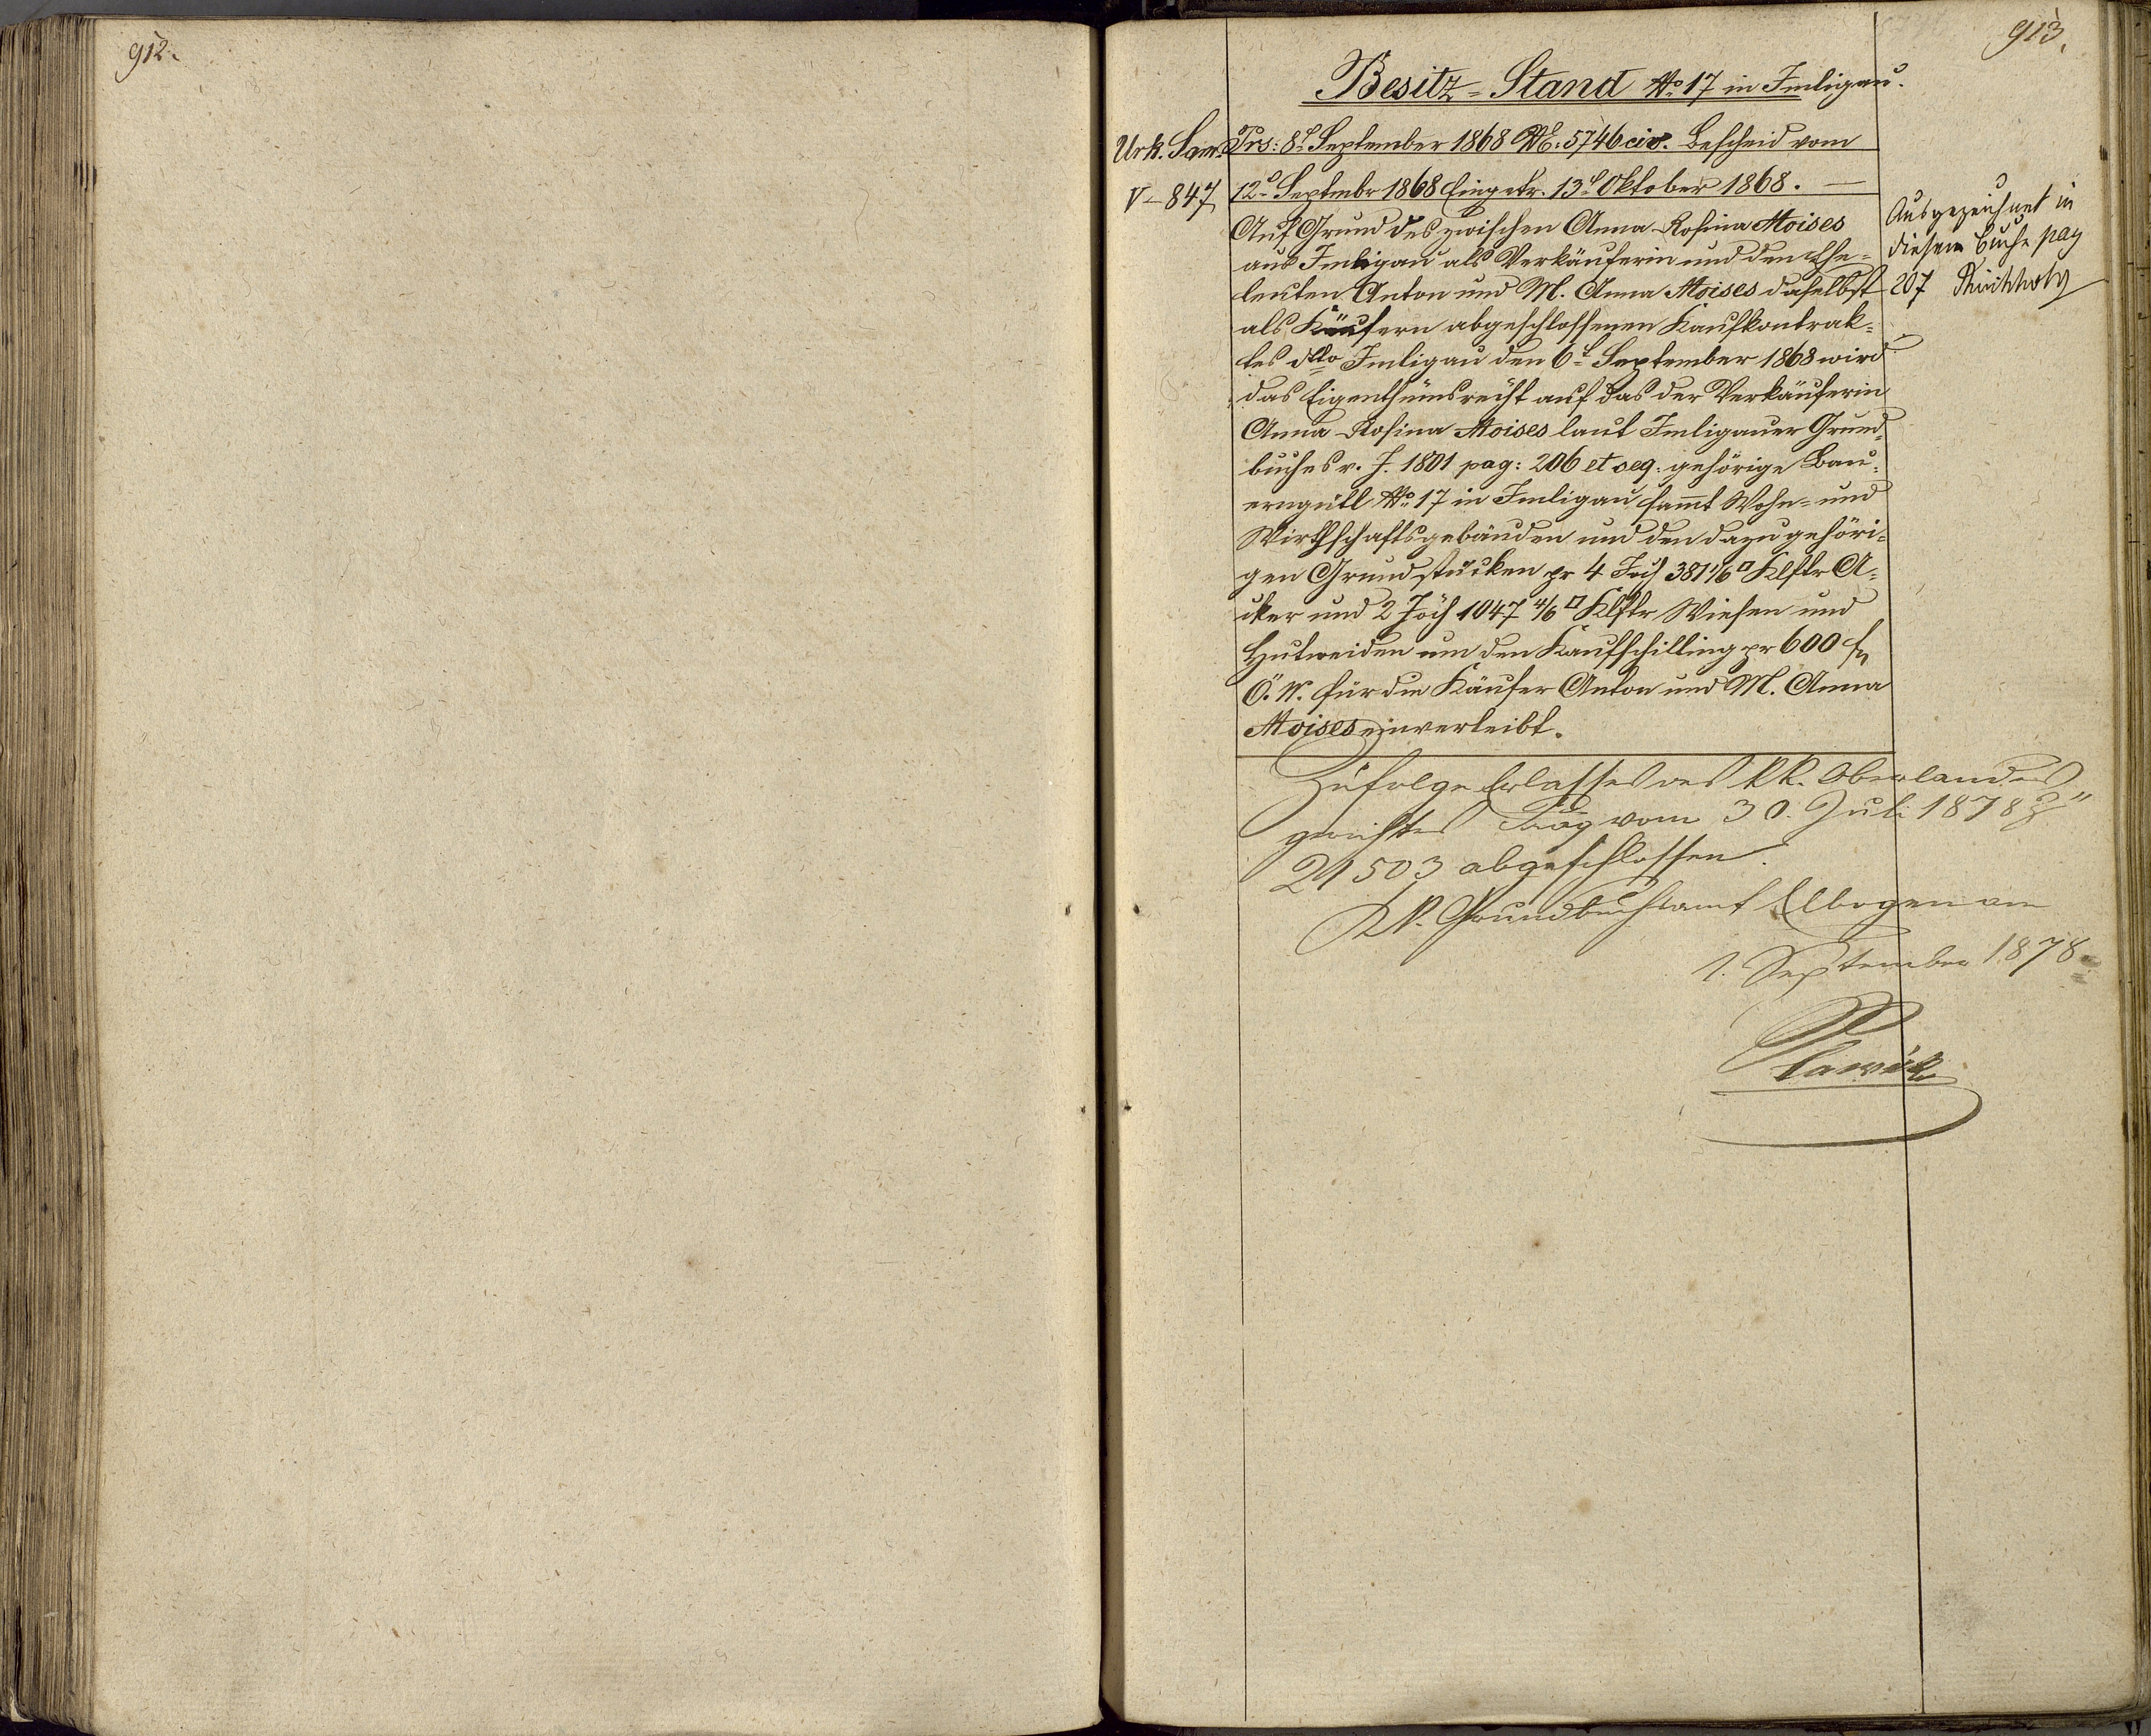 912.
913.
Besitz-Stand No 17 in Imligau.
Urk. Sam.
V-847
Prs: 8t September 1868 NE: 5746 civ. Bescheid vom
12t Septembr 1868 Eingetr. 13t Oktober 1868.
Auf Grund des zwischen Anna Rosina Moises
aus Imligau als Verkäuferin und den Ehe-
leuten Anton und M. Anna Moises daselbst
als Käufern abgeschlossenen Kaufkontrak-
tes dtto Imligau den 6t September 1868 wird
das Eigenthumsrecht auf das der Verkäuferin
Anna Rosina Moises laut Imligauer Grund-
buches v. J. 1801 pag: 206 et seq: gehörige Bau-
erngütl No 17 in Imligau sammt Wohn- und
Wirthschaftsgebäuden und den dazu gehöri-
gen Grundstücken pr 4 Joch 381 1/6 □ Klftr A-
cker und 2 Joch 1047 4/6 □ Klftr Wiesen und
Hutweiden um den Kaufschilling pr 600 fn
Ö. W. für die Käufer Anton und M. Anna
Moises einverleibt.
Ausgezeichnet in
diesem Buche pag
207
Zufolge Erlasses des k.k. Oberlandes
gerichtes Prag vom 30. Juli 1878 Z
21503 abgeschlossen.
K.k. Grundbuchsamt Elbogen am
1. September 1878.